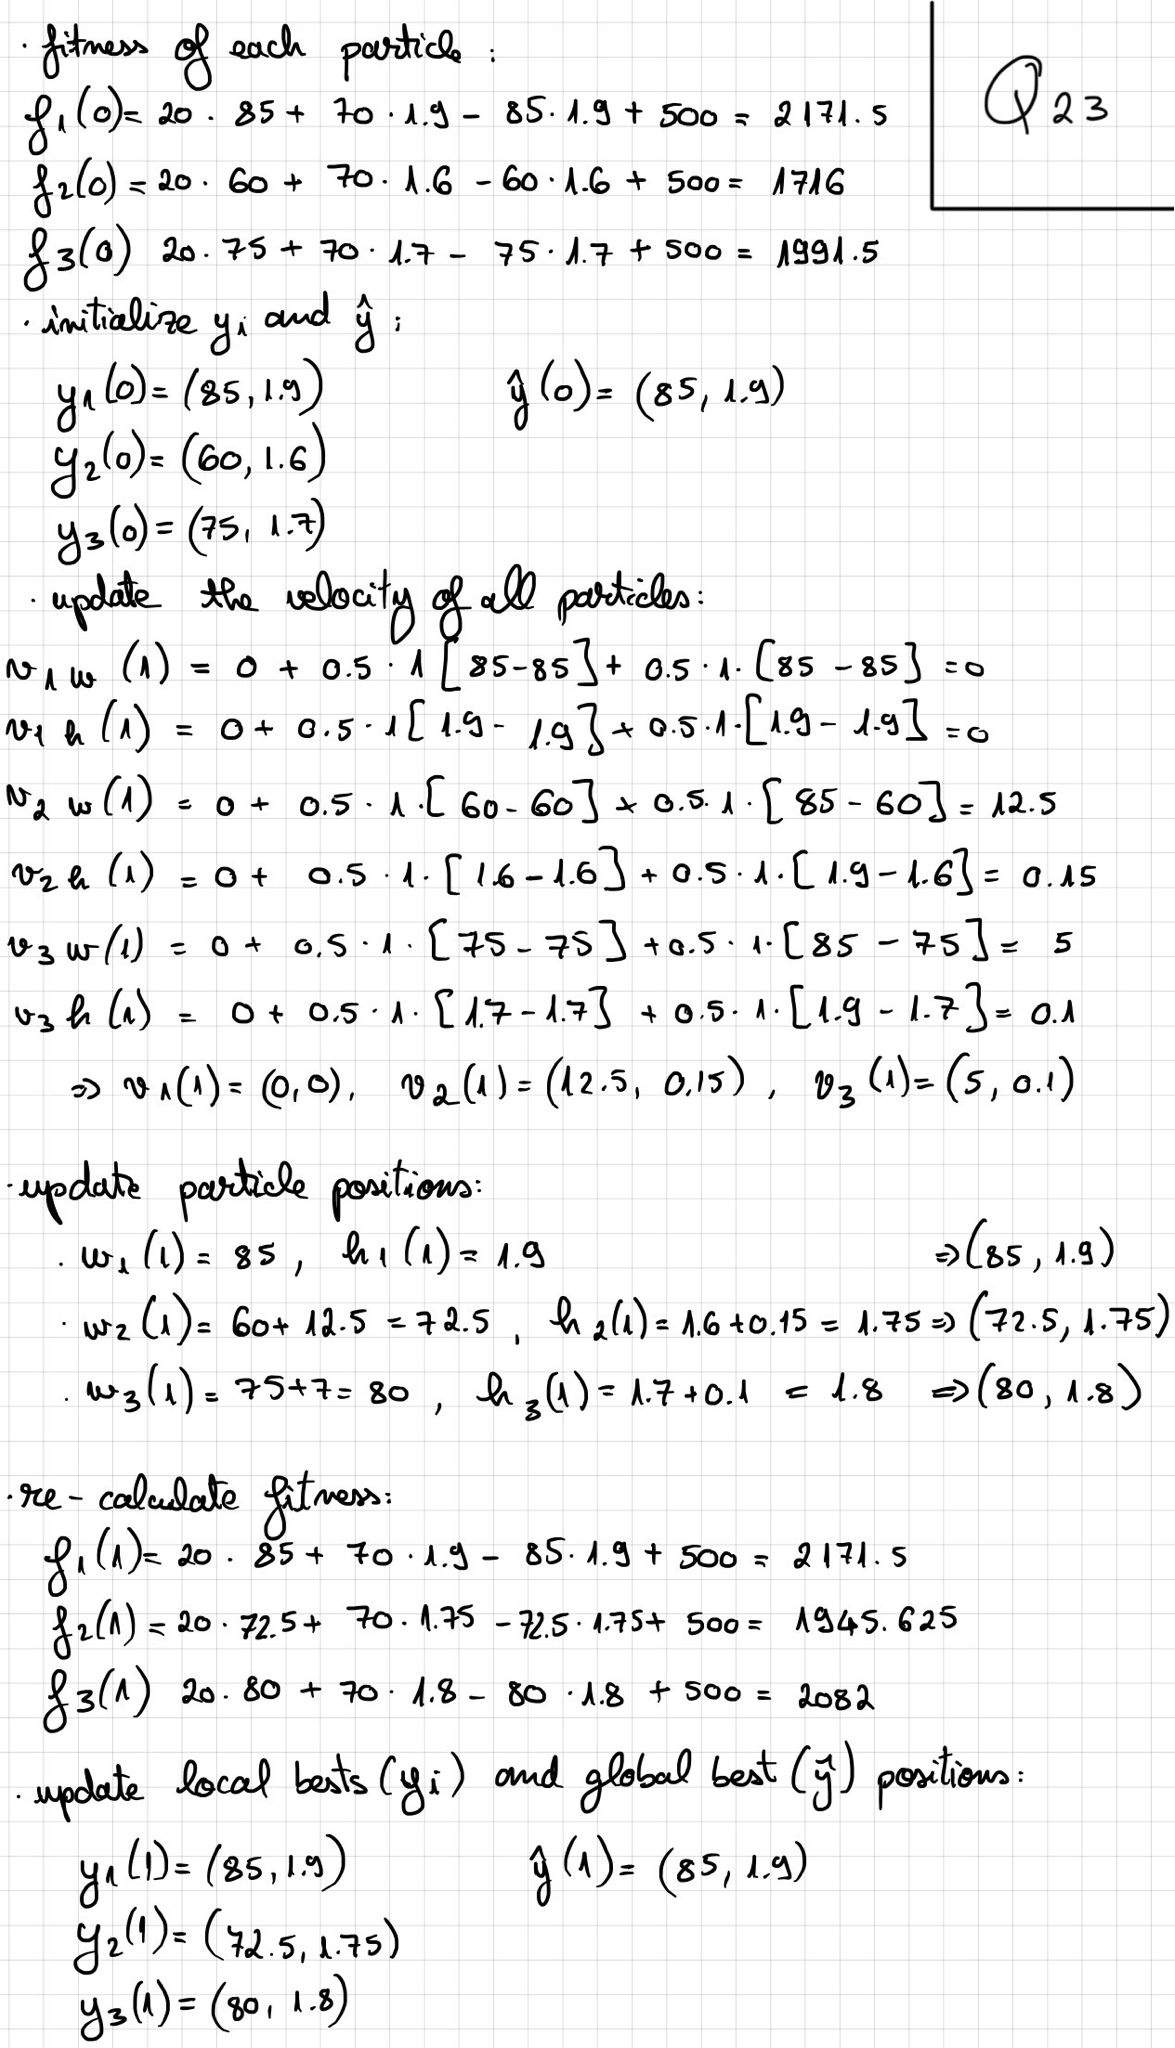 · fitness of each particle :
Q 23
f1(0)= 20 · 85 + 70 · 1.9 - 85 · 1.9 + 500 = 2171.5
f2(0) = 20 · 60 + 70 · 1.6 - 60 · 1.6 + 500 = 1716
f3(0) 20 · 75 + 70 · 1.7 - 75 · 1.7 + 500 = 1991.5
· initialize yi and ŷ :
y1(0)= (85, 1.9) ŷ(0)= (85, 1.9)
y2(0)= (60, 1.6)
y3(0)= (75, 1.7)
· update the velocity of all particles:
v1w (1) = 0 + 0.5 · 1 [85-85] + 0.5 · 1 · [85 - 85] = 0
v1h (1) = 0 + 0.5 · 1 [1.9 - 1.9] + 0.5 · 1 · [1.9 - 1.9] = 0
v2w(1) = 0 + 0.5 · 1 · [60-60] + 0.5 · 1 · [85 - 60] = 12.5
v2h (1) = 0 + 0.5 · 1 · [1.6 - 1.6] + 0.5 · 1 · [1.9 - 1.6] = 0.15
v3w(1) = 0 + 0.5 · 1 · [75 - 75] + 0.5 · 1 · [85 - 75] = 5
v3h (1) = 0 + 0.5 · 1 · [1.7 - 1.7] + 0.5 · 1 · [1.9 - 1.7] = 0.1
⇒ v1(1) = (0,0), v2(1) = (12.5, 0.15) , v3(1) = (5, 0.1)
· update particle positions:
· w1(1) = 85 , h1(1) = 1.9 ⇒ (85, 1.9)
· w2(1) = 60 + 12.5 = 72.5 , h2(1) = 1.6 + 0.15 = 1.75 ⇒ (72.5, 1.75)
· w3(1) = 75+7 = 80 , h3(1) = 1.7 + 0.1 = 1.8 ⇒ (80, 1.8)
· re-calculate fitness:
f1(1)= 20 · 85 + 70 · 1.9 - 85 · 1.9 + 500 = 2171.5
f2(1) = 20 · 72.5 + 70 · 1.75 - 72.5 · 1.75 + 500 = 1945.625
f3(1) 20 · 80 + 70 · 1.8 - 80 · 1.8 + 500 = 2082
· update local bests (yi) and global best (ŷ) positions:
y1(1)= (85, 1.9) ŷ(1)= (85, 1.9)
y2(1)= (72.5, 1.75)
y3(1) = (80, 1.8)